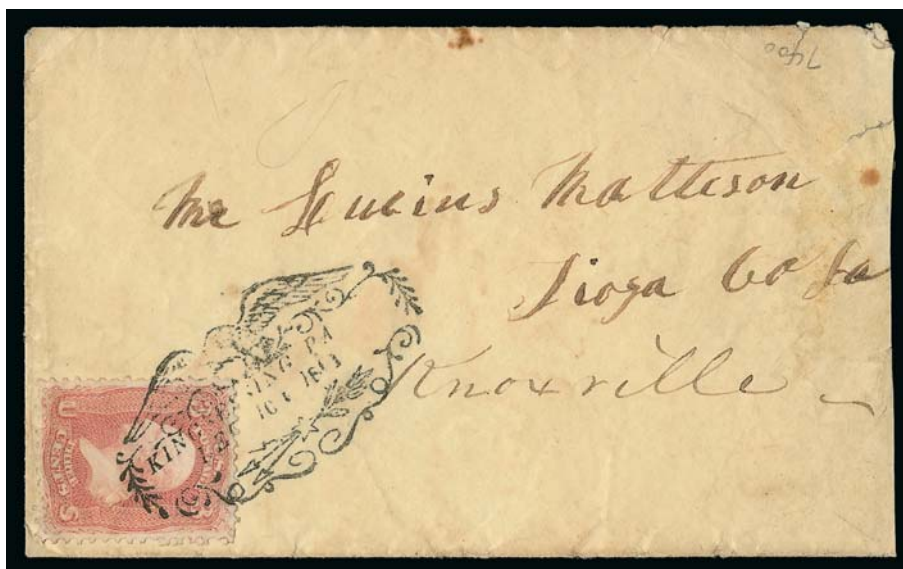 7400
Mr Lucius Matteson
Tioga Co Pa
Knoxville
KING PA
KING
U
THREE CENTS
S